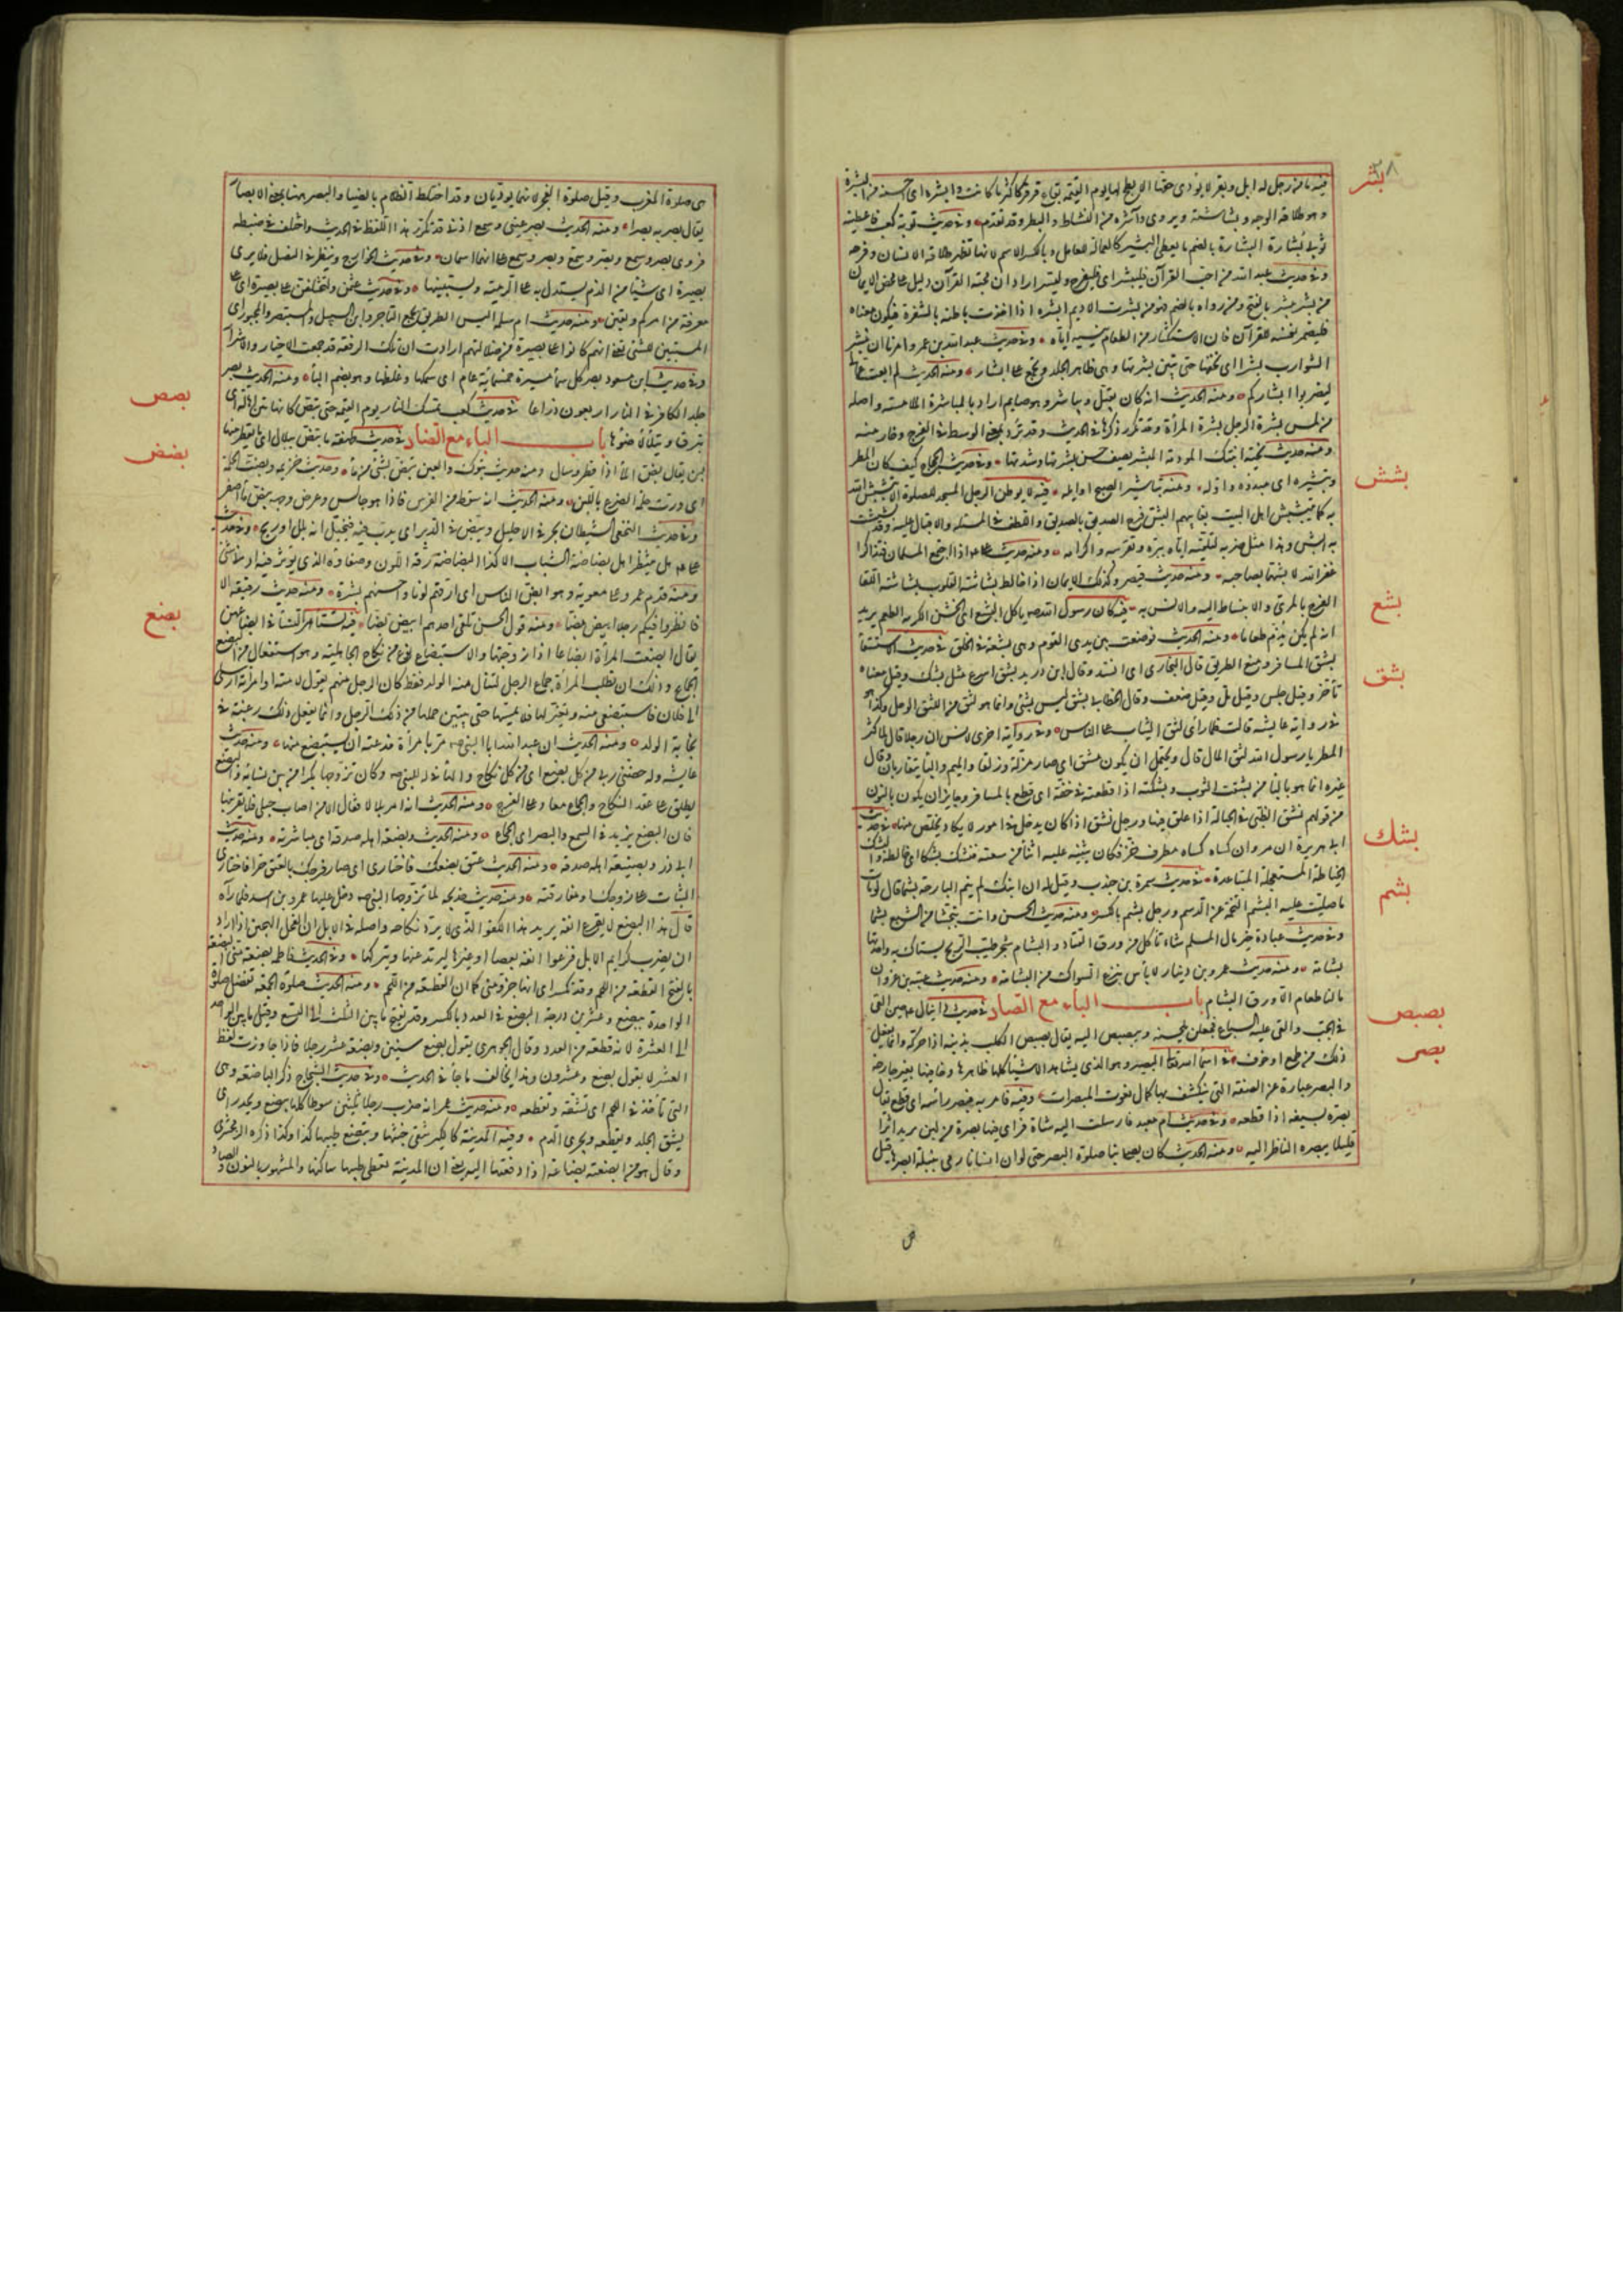 بشر
فيه ما من رجل له ابل وبقر لا يؤدى حقها الا بطح لها يوم القيمة بقاع قرقر كاكثر ما كانت وابشره اى احسنه من البشر
وهو طلاقة الوجه وبشاشته ويروى وآشره من النشاط والبطر وقد تقدم وفى حديث توبة كعب فاعطيته
ثوبى بشارة البشارة بالضم ما يعطى البشير كالعمالة للعامل وبالكسر الاسم لانها تظهر طلاقة الانسان وفرحه
وفى حديث عبد الله من احب القرآن فليبشر اى فليفرح وليسر اراد ان محبة القرآن دليل على محض الايمان
من بشر يبشر بالفتح ومن رواه بالضم فهو من بشرت الاديم ابشره اذا اخذت باطنه بالشفرة فيكون معناه
فليضمر نفسه للقرآن فان الاستكثار من الطعام ينسيه اياه وفى حديث عبد الله بن عمرو امرنا ان نبشر
الشوارب بشرا اى نحفها حتى تبين بشرتها وهى ظاهر الجلد ويجمع على ابشار ومنه الحديث لم ابعث عمالى
ليضربوا ابشاركم ومنه الحديث انه كان يقبل ويباشر وهو صايم اراد بالمباشرة الملامسة واصله
من لمس بشرة الرجل بشرة المرأة وقد تكرر ذكرها فى الحديث وقد ترد بمعنى الوطء فى الفرج وخارجا منه
ومنه حديث نجية ابنتك المودمة المبشرة يصف حسن بشرتها وشدتها وفى حديث الحجاج كيف كان المطر
وتبشيره اى مبدؤه واوله ومنه تباشير الصبح اوايله
بشش
فيه لا يوطن الرجل المساجد للصلوة الا تبشبش الله
به كما يتبشبش اهل البيت بغايبهم البش فرح الصديق بالصديق واللطف فى المسئلة والاقبال عليه وقد بششت
به ابش وهذا مثل ضربه لتلقيه اياه ببره وتقريبه واكرامه ومنه حديث على اذا اجتمع المسلمان فتذاكرا
غفر الله لابشهما بصاحبه ومنه حديث قيصر وكذلك الايمان اذا خالط بشاشته القلوب بشاشة اللقاء
الفرح بالمرء والانبساط اليه والانس به
بشع
فيه كان رسول الله ياكل البشع اى الخشن الكريه الطعم يريد
انه لم يكن يذم طعاما ومنه الحديث فوضعت بين يدى القوم وهى بشعة فى الحلق
بشق
فى حديث الاستسقاء
بشق المسافر ومنع الطريق قال البخارى اى انسد وقال ابن دريد بشق اسرع مثل بشك وقيل معناه
تأخر وقيل حبس وقيل مل وقيل ضعف وقال الخطابى بشق ليس بشئ وانما هو لثق من اللثق الوحل وكذا هو
فى رواية عايشة قالت فلما رأى لثق الثياب على الناس وفى رواية اخرى لانس ان رجلا قال لما كثر
المطر يا رسول الله لثق المال قال ويحتمل ان يكون مشق اى صار مزلة وزلقا والميم والباء يتقاربان وقال
غيره انما هو بالباء من بشقت الثوب وبشكته اذا قطعته فى خفة اى قطع بالمسافر وجايز ان يكون بالنون
من قولهم نشق الظبى فى الحبالة اذا علق فيها ورجل نشق اذا كان يدخل فى امور لا يكاد يخلص منها
بشك
فى حديث
ابى هريرة ان مروان كساه مطرف خز فكان يثنيه عليه اثناء من سعته فبشكه بشكا اى خاطه والبشك
الخياطة المستعجلة المتباعدة
بشم
فى حديث سمرة بن جندب وقيل له ان ابنك لم ينم البارحة بشما قال لو مات
ما صليت عليه البشم التخمة عن الدسم ورجل بشم بالكسر ومنه حديث الحسن وانت تتجشأ من الشبع بشما
وفى حديث عبادة خير مال المسلم شاء تأكل من ورق القتاد والبشام شجر طيب الريح يستاك به واحدتها
بشامة ومنه حديث عمرو بن دينار لا باس بنزع السواك من البشامة ومنه حديث عتبة بن غزوان
ما لنا طعام الا ورق البشام باب الباء مع الصاد
بصبص
فى حديث دانيال عليه حين القى
فى الجب والقى عليه السباع فجعلن يلحسنه ويبصبصن اليه يقال بصبص الكلب بذنبه اذا حركه وانما يفعل
ذلك من طمع او خوف
بصر
فى اسماء الله تعالى البصير وهو الذى يشاهد الاشياء كلها ظاهرها وخافيها بغير جارحة
والبصر عبارة عن الصفة التى ينكشف بها كمال نعوت المبصرات وفيه فامر به فبصر رأسه اى قطع يقال
بصره بسيفه اذا قطعه وفى حديث ام معبد فارسلت اليه شاة فرأى فيها بصرة من لبن يريد اثرا
قليلا يبصره الناظر اليه ومنه الحديث كان يصلى بنا صلوة البصر حتى لو ان انسانا رمى بنبلة ابصرها قيل
هى صلوة المغرب وقيل صلوة الفجر لانهما يؤديان وقد اختلط الظلام بالضياء والبصر ههنا بمعنى الابصار
يقال بصر به بصرا ومنه الحديث بصر عينى وسمع اذنى قد تكرر هذا اللفظ فى الحديث واختلف فى ضبطه
فروى بصر وسمع وبصر وسمع وبصر وسمع على انهما اسمان وفى حديث الخوارج وينظر فى النصل فلا يرى
بصيرة اى شيئا من الدم يستدل به على الرمية ويستبينها وفى حديث عثمن ولتختلفن على بصيرة اى على
معرفة من امركم ويقين ومنه حديث ام سلمة اليس الطريق يجمع التاجر وابن السبيل والمستبصر والمجبور اى
المستبين للشئ يعنى انهم كانوا على بصيرة من ضلالتهم ارادت ان تلك الرفقة قد جمعت الاخيار والاشرار
وفى حديث ابن مسعود بصر كل سماء مسيرة خمسمائة عام اى سمكها وغلظها وهو بضم الباء ومنه الحديث بصر
جلد الكافر فى النار اربعون ذراعا
بصص
فى حديث كعب تمسك النار يوم القيمة حتى تبص كانها متن اهالة اى
تبرق ويتلألأ ضوئها باب الباء مع الضاد
بضض
فى حديث طهفة ما تبض ببلال اى ما يقطر منها
لبن يقال بض الماء اذا قطر وسال ومنه حديث تبوك والعين تبض بشئ من ماء وحديث خزيمة وبضت الحلمة
اى درت حلمة الضرع باللبن ومنه الحديث انه سقط من الفرس فاذا هو جالس وعرض وجهه يبض ماء اصفر
وفى حديث النخعى الشيطان يجرى فى الاحليل ويبض فى الدبر اى يدب فيه فيخيل انه بلل او ريح وفى حديث
على هل ينتظر اهل بضاضة الشباب الا كذا البضاضة رقة اللون وصفاؤه الذى يؤثر فيه ادنى شئ
ومنه قدم عمر على معوية وهو ابض الناس اى ارقهم لونا واحسنهم بشرة ومنه حديث رقيقة الا
فانظروا فيكم رجلا ابيض بضا ومنه قول الحسن تلقى احدهم ابيض بضا
بضع
فيه تستأمر النساء فى ابضاعهن
يقال ابضعت المرأة ابضاعا اذا زوجتها والاستبضاع نوع من نكاح الجاهلية وهو استفعال من البضع
الجماع وذلك ان تطلب المرأة جماع الرجل لتنال منه الولد فقط كان الرجل منهم يقول لامته او امرأته ارسلى
الى فلان فاستبضعى منه ويعتزلها فلا يمسها حتى يتبين حملها من ذلك الرجل وانما يفعل ذلك رغبة فى
نجابة الولد ومنه الحديث ان عبد الله ابا النبى مر بامرأة فدعته ان يستبضع منها ومنه حديث
عايشة وله حصننى ربى من كل بضع اى من كل نكاح والهاء فى له للنبى وكان تزوجها بكرا من بين نسائه والبضع
يطلق على عقد النكاح والجماع معا وعلى الفرج ومنه الحديث انه امر بلالا فقال الا من اصاب حبلى فلا يقربنها
فان البضع يزيد فى السمع والبصر اى الجماع ومنه الحديث وبضعه اهله صدقة اى مباشرته ومنه حديث
ابى ذر وبضيعته اهله صدقة ومنه الحديث عتق بضعك فاختارى اى صار فرجك بالعتق حرا فاختارى
الثبات على زوجك او مفارقته ومنه حديث خديجة لما تزوجها النبى دخل عليها عمرو بن اسد فلما رآه
قال هذا البضع لا يقرع انفه يريد هذا الكفو الذى لا يرد نكاحه واصله فى الابل ان الفحل الهجين اذا اراد
ان يضرب كرايم الابل قرعوا انفه بعصا او غيرها ليرتد عنها ويتركها وفى الحديث فاطمة بضعة منى البضعة
بالفتح القطعة من اللحم وقد تكسر اى انها جزو منى كما ان القطعة من اللحم ومنه الحديث صلوة الجمعة تفضل صلوة
الواحد ببضع وعشرين درجة البضع فى العدد بالكسر وقد يفتح ما بين الثلث الى التسع وقيل ما بين الواحد
الى العشرة لانه قطعة من العدد وقال الجوهرى يقول بضع سنين وبضعة عشر رجلا فاذا جاوزت لفظ
العشر لا يقول بضع وعشرون وهذا يخالف ما جاء فى الحديث وفى حديث الشجاج ذكر الباضعة وهى
التى تأخذ فى اللحم اى تشقه وتقطعه ومنه حديث عمر انه ضرب رجلا ثلثين سوطا كلها يبضع ويحدر اى
يشق الجلد ويقطعه ويجرى الدم وفيه المدينة كالكير تنفى خبثها وتبضع طيبها كذا وكذا ذكره الزمخشرى
وقال هو من ابضعته بضاعة اذا دفعتها اليه يعنى ان المدينة تعطى طيبها ساكنها والمشهور بالنون والصاد